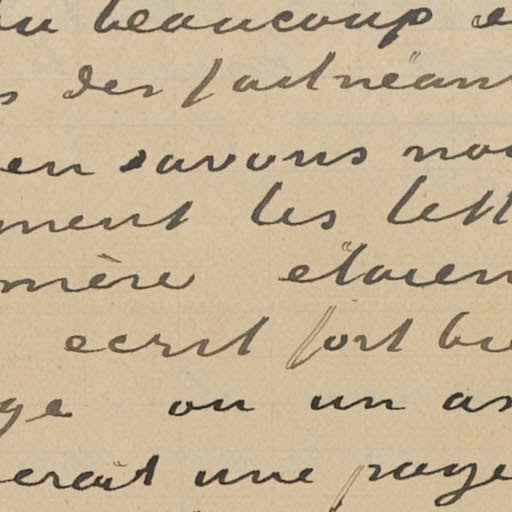 beaucoup
des fastnéant
en savons nou
ment les lett
mère étaien
ecrit fort bie
ge ou un as
erait une page